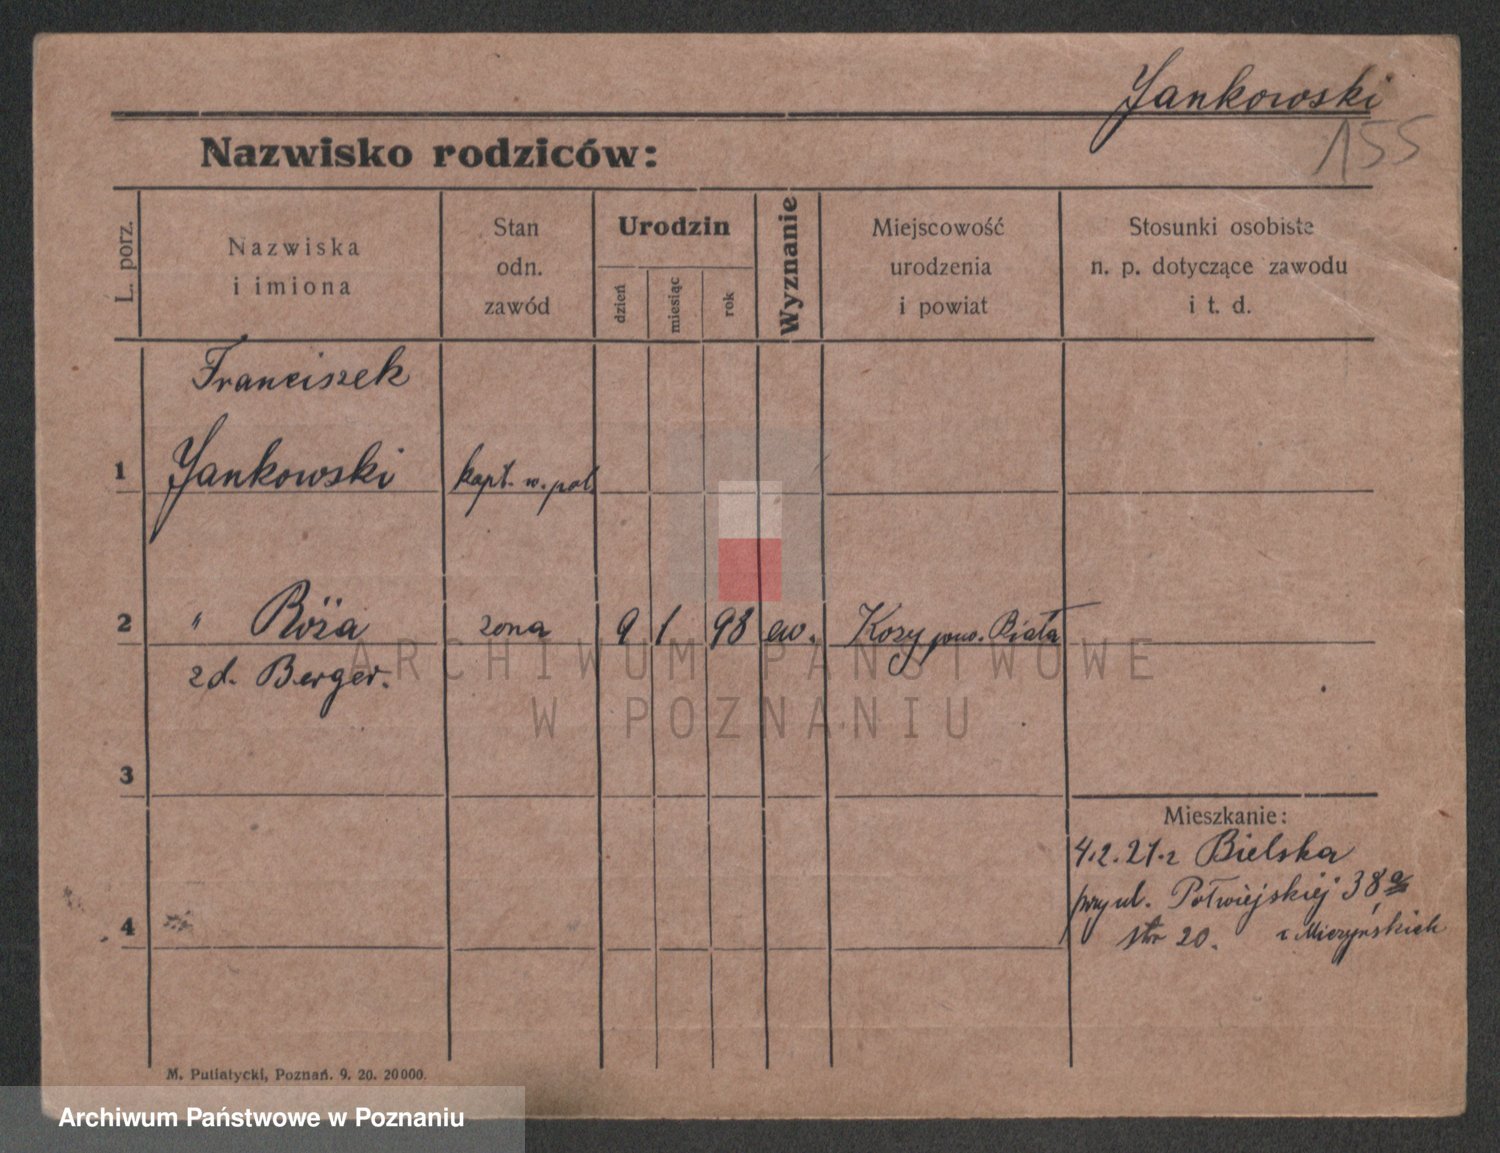 Jankowski
155
Nazwisko rodziców:
L. porz.
Nazwiska
i imiona
Stan
odn.
zawód
Urodzin
dzień
miesiąc
rok
Wyznanie
Miejscowość
urodzenia
i powiat
Stosunki osobiste
n. p. dotyczące zawodu
i t. d.
Franciszek
1 Jankowski kapt. w. pol.
2 " Róża żona 9 1 98 ew. Kozy pow. Biała
zd. Berger.
ARCHIWUM PAŃSTWOWE
W POZNANIU
3
Mieszkanie:
4.2.21. z Bielska
przy ul. Półwiejskiej 38
4
20. z Mierzyńskich
M. Putiatycki, Poznań. 9. 20. 20000.
Archiwum Państwowe w Poznaniu